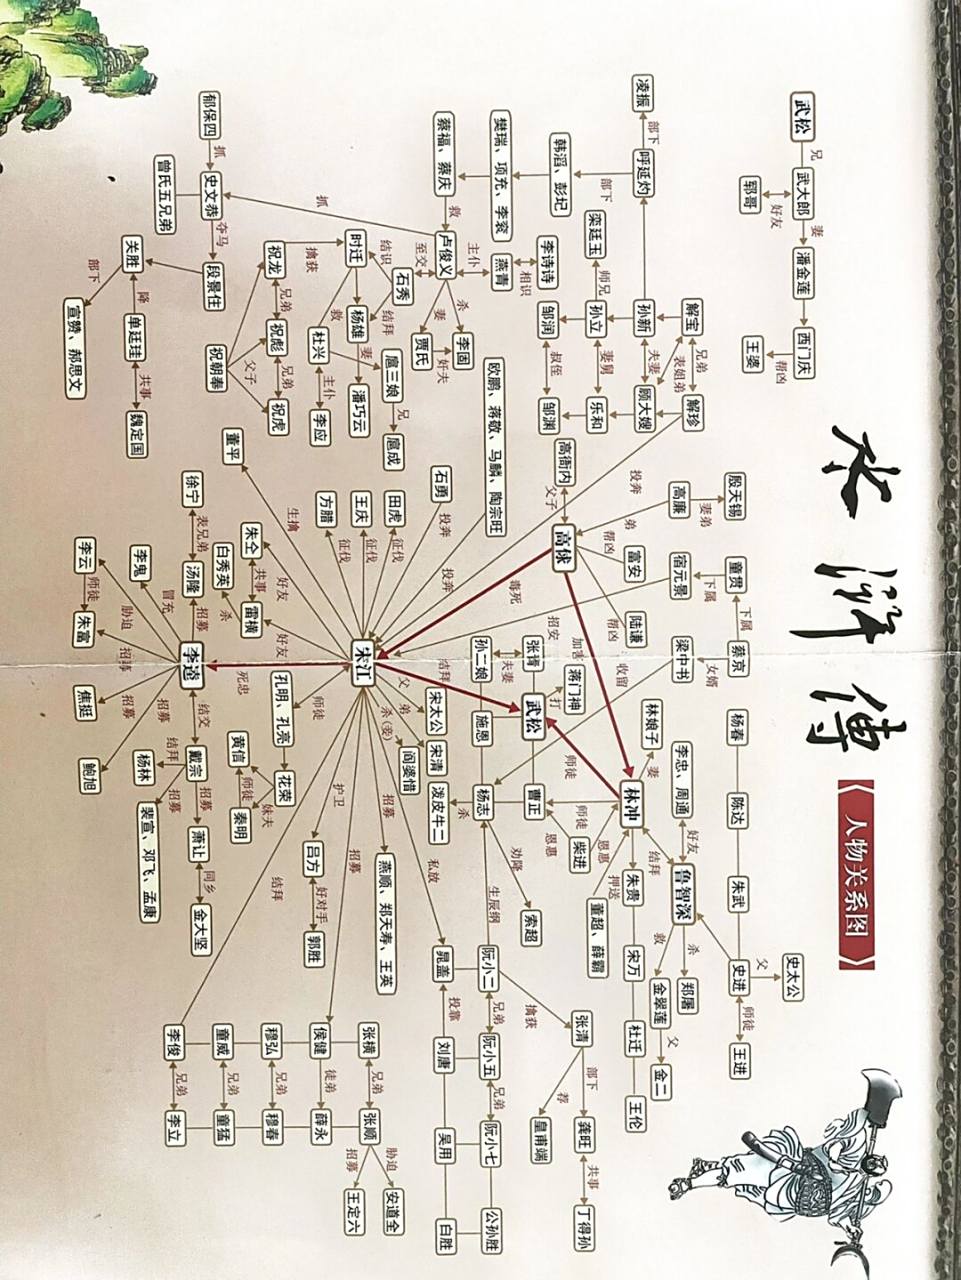 水浒传
《人物关系图》
武松
兄
武大郎
妻
潘金莲
西门庆
好友
郓哥
帮凶
王婆
殷天锡
妻弟
高廉
童贯
下属
蔡京
下属
宿元景
梁中书
女婿
杨春
陈达
朱武
史进
父
史太公
师徒
王进
凌振
部下
呼延灼
解宝
兄弟
解珍
表姐弟
孙新
夫妻
顾大嫂
栾廷玉
师兄
孙立
妻舅
乐和
邹润
叔侄
邹渊
部下
韩滔、彭玘
樊瑞、项充、李衮
蔡福、蔡庆
救
卢俊义
主仆
燕青
相识
李诗诗
至交
杀
李固
妻
贾氏
奸夫
投奔
弟
高衙内
父子
高俅
帮凶
富安
帮凶
陆谦
毒死
招安
加害
收留
林娘子
妻
林冲
李忠、周通
好友
鲁智深
结拜
杀
郑屠
救
金翠莲
父
金二
朱贵
宋万
杜迁
王伦
押送
董超、薛霸
恩惠
柴进
师徒
恩惠
曹正
师徒
张青
夫妻
孙二娘
蒋门神
打
武松
结拜
施恩
杨志
杀
泼皮牛二
劝降
索超
生辰纲
阮小二
兄弟
阮小五
兄弟
阮小七
公孙胜
擒获
张清
部下
龚旺
共事
丁得孙
荐
皇甫端
晁盖
投靠
刘唐
吴用
白胜
私放
欧鹏、蒋敬、马麟、陶宗旺
投奔
石勇
投奔
田虎
征伐
王庆
征伐
方腊
征伐
宋江
父
宋太公
弟
宋清
杀(妾)
阎婆惜
郁保四
抓
史文恭
夺马
段景住
曾氏五兄弟
抓
时迁
结识
石秀
结拜
杨雄
妻
潘巧云
擒获
祝龙
兄弟
祝彪
兄弟
祝虎
父子
祝朝奉
救
杜兴
主仆
李应
扈三娘
兄
扈成
关胜
部下
宣赞、郝思文
降
单廷珪
共事
魏定国
董平
生擒
徐宁
表兄弟
汤隆
招募
朱仝
共事
雷横
好友
好友
白秀英
杀
李鬼
冒充
李云
师徒
朱富
胁迫
招募
李逵
死忠
焦挺
招募
鲍旭
招募
结交
戴宗
结拜
杨林
招募
裴宣、邓飞、孟康
招募
萧让
同乡
金大坚
师徒
孔明、孔亮
花荣
妹夫
秦明
师徒
黄信
护卫
吕方
好对手
郭胜
招募
燕顺、郑天寿、王英
招募
结拜
张横
兄弟
张顺
胁迫
安道全
招募
王定六
侯健
徒弟
薛永
穆弘
兄弟
穆春
童威
兄弟
童猛
李俊
兄弟
李立